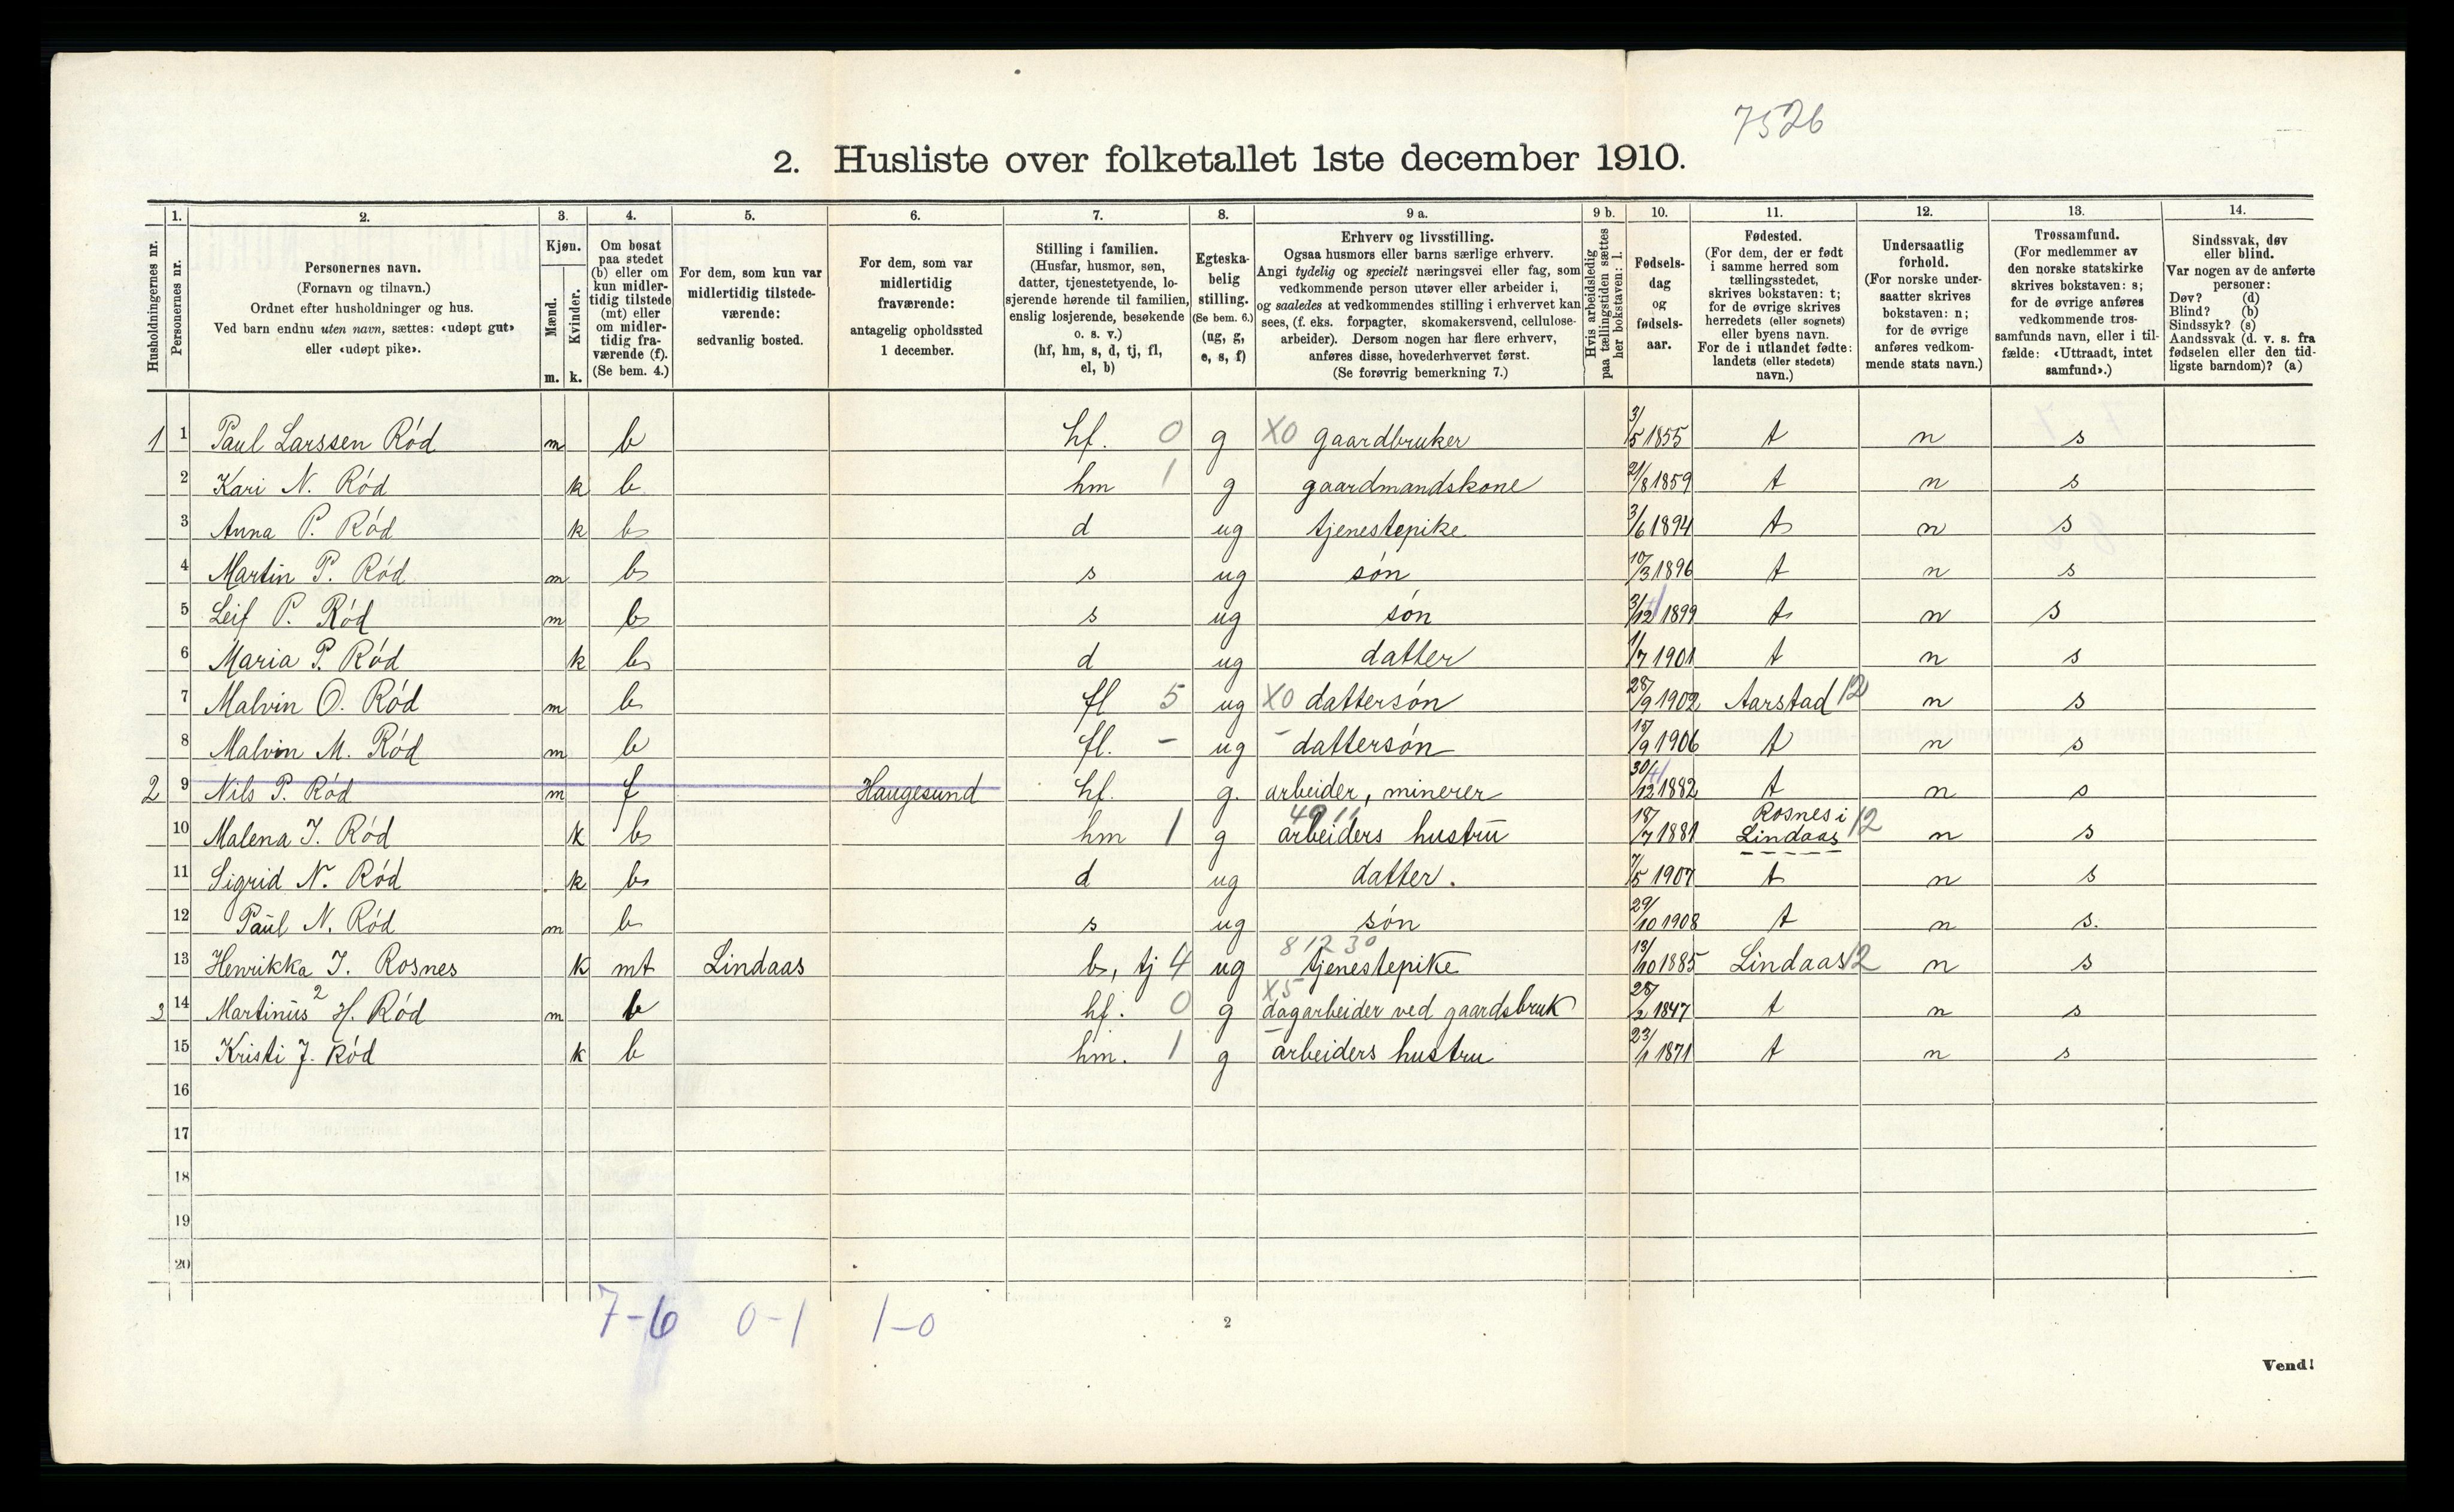 7526
2. Husliste over folketallet 1ste december 1910.
1. 2. 3. 4. 5. 6. 7. 8. 9 a. 9 b. 10. 11. 12. 13. 14.
Husholdningernes nr.
Personernes nr.
Personernes navn.
(Fornavn og tilnavn.)
Ordnet efter husholdninger og hus.
Ved barn endnu uten navn, sættes: «udøpt gut»
eller «udøpt pike».
Kjøn.
Mænd.
Kvinder.
m. k.
Om bosat
paa stedet
(b) eller om
kun midler-
tidig tilstede
(mt) eller
om midler-
tidig fra-
værende (f).
(Se bem. 4.)
For dem, som kun var
midlertidig tilstede-
værende:
sedvanlig bosted.
For dem, som var
midlertidig
fraværende:
antagelig opholdssted
1 december.
Stilling i familien.
(Husfar, husmor, søn,
datter, tjenestetyende, lo-
sjerende hørende til familien,
enslig losjerende, besøkende
o. s. v.)
(hf, hm, s, d, tj, fl,
el, b)
Egteska-
belig
stilling.
(Se bem. 6.)
(ug, g,
e, s, f)
Erhverv og livsstilling.
Ogsaa husmors eller barns særlige erhverv.
Angi tydelig og specielt næringsvei eller fag, som
vedkommende person utøver eller arbeider i,
og saaledes at vedkommendes stilling i erhvervet kan
sees, (f. eks. forpagter, skomakersvend, cellulose-
arbeider). Dersom nogen har flere erhverv,
anføres disse, hovederhvervet først.
(Se forøvrig bemerkning 7.)
Hvis arbeidsledig
paa tællingstiden sættes
her bokstaven: l.
Fødsels-
dag
og
fødsels-
aar.
Fødested.
(For dem, der er født
i samme herred som
tællingsstedet,
skrives bokstaven: t;
for de øvrige skrives
herredets (eller sognets)
eller byens navn.
For de i utlandet fødte:
landets (eller stedets)
navn.)
Undersaatlig
forhold.
(For norske under-
saatter skrives
bokstaven: n;
for de øvrige
anføres vedkom-
mende stats navn.)
Trossamfund.
(For medlemmer av
den norske statskirke
skrives bokstaven: s;
for de øvrige anføres
vedkommende tros-
samfunds navn, eller i til-
fælde: «Uttraadt, intet
samfund».)
Sindssvak, døv
eller blind.
Var nogen av de anførte
personer:
Døv? (d)
Blind? (b)
Sindssyk? (s)
Aandssvak (d. v. s. fra
fødselen eller den tid-
ligste barndom)? (a)
1 1 Paul Larssen Ród m b hf. 0 g X0 gaardbruker 3/5 1855 t n s
2 Kari N. Ród k b hm 1 g gaardmandskone 21/8 1859 t n s
3 Anna P. Ród k b d ug tjenestepike 3/6 1894 t n s
4 Martin P. Ród m b s ug són 10/3 1896 t n s
5 Leif P. Ród m b s ug són 3/12 1899 t n s
6 Maria P. Ród k b d ug datter 1/7 1901 t n s
7 Malvin O. Ród m b fl 5 ug X0 dattersón 28/9 1902 Aarstad 12 n s
8 Malvin M. Ród m b fl. - ug - dattersón 15/9 1906 t n s
2 9 Nils P. Ród m f Haugesund hf. g. arbeider, minerer 30/12 1882 t n s
10 Malena J. Ród k b hm 1 g arbeiders hustru 18/7 1881 Rosnes i Lindaas 12 n s
11 Sigrid N. Ród k b d ug datter. 7/5 1907 t n s
12 Paul N. Ród m b s ug són 29/10 1908 t n s.
13 Henrikka J. Rosnes k mt Lindaas b, tj 4 ug 8 12 30 tjenestepike 13/10 1885 Lindaas 12 n s
3 14 Martinus 2 H. Ród m b hf. 0 g X5 dagarbeider ved gaardsbruk 28/2 1847 t n s
15 Kristi J. Ród k b hm. 1 g arbeiders hustru 23/1 1871 t n s
16
17
18
19
20
7-6 0-1 1-0
2
Vend!